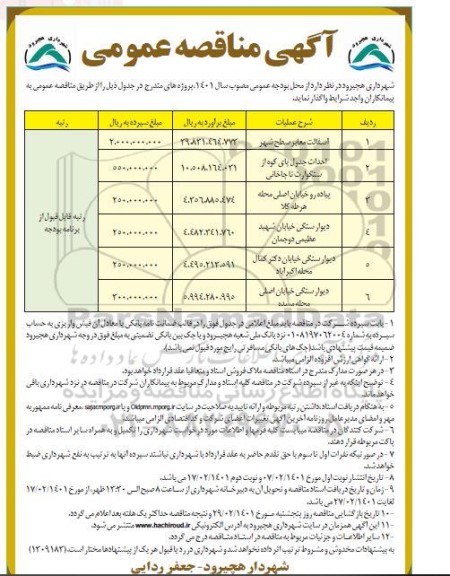 شهرداری هچیرود
آگهی مناقصه عمومی
شهرداری هچیرود
شهرداری هچیرود در نظر دارد از محل بودجه عمومی مصوب سال ۱۴۰۱، پروژه های مندرج در جدول ذیل را از طریق مناقصه عمومی به
پیمانکاران واجد شرایط واگذار نماید.
ردیف شرح عملیات مبلغ برآورد به ریال مبلغ سپرده به ریال رتبه
۱ آسفالت معابر سطح شهر ۳۹.۸۳۱.۴۶۴.۷۷۳ ۲.۰۰۰.۰۰۰.۰۰۰
۲ احداث جدول پای کوه از
سنگوارت تا چاخانی ۱۰.۵۰۸.۱۶۴.۰۳۱ ۵۵۰.۰۰۰.۰۰۰
۳ پیاده رو خیابان اصلی محله
هرطه کلا ۴.۳۵۶.۸۸۵.۴۷۴ ۲۵۰.۰۰۰.۰۰۰
رتبه قابل قبول از
برنامه بودجه
۴ دیوار سنگی خیابان شهید
عظیمی دوجمان ۴.۴۸۲.۳۴۱.۷۶۰ ۲۵۰.۰۰۰.۰۰۰
۵ دیوار سنگی خیابان دکتر کمال
محله اکبرآباد ۴.۴۹۵.۲۱۳.۵۹۱ ۲۵۰.۰۰۰.۰۰۰
۶ دیوار سنگی خیابان اصلی
محله ۵.۹۹۴.۲۸۰.۹۹۵ ۳۰۰.۰۰۰.۰۰۰
۱- بابت سپرده شرکت در مناقصه باید مبلغ اعلامی در جدول فوق را در قالب ضمانت نامه بانکی یا معادل آن فیش واریزی به حساب
سپرده به شماره ۰۱۰۸۱۹۷۰۶۲۰۰۴ نزد بانک ملی شعبه هچیرود و یا چک بین بانکی تضمینی به مبلغ فوق در وجه شهرداری هچیرود
ضمیمه قیمت پیشنهادی باشد (چک های بانکی مسافرتی رایج مورد قبول نمی باشد).
۲- ارائه گواهی ارزش افزوده الزامی میباشد
۳- در هر صورت مدارک مندرج در اسناد مناقصه ملاک فروش اسناد و متعاقبا عقد قرارداد خواهد بود.
۴- توضیح اینکه به غیر از سپرده شرکت در مناقصه کلیه اسناد و مدارک مربوطه به پیمانکاران شرکت در مناقصه در نزد شهرداری باقی
خواهد ماند.
۵- به هنگام دریافت اسناد، داشتن رتبه مربوطه و ارائه تاییدیه صلاحیت در سایت و یا معرفی نامه ممهور به
مهر و امضای مدیر عامل، روزنامه آخرین آگهی تغییرات اعضای شرکت و کد اقتصادی الزامی میباشد.
۶- شرکت کنندگان در مناقصه می بایست کلیه فرمها و اطلاعات مورد درخواست شهرداری را تکمیل و به همراه سایر اسناد مناقصه در
پاکت مربوطه قرار دهند.
۷- در صورتیکه نفرات اول تا سوم با حق تقدم حاضر به عقد قرارداد با شهرداری نباشند سپرده آنها به ترتیب به نفع شهرداری ضبط
خواهد شد.
۸- تاریخ انتشار نوبت اول مورخ ۰۷/۰۲/۱۴۰۱ و نوبت دوم ۱۷/۰۲/۱۴۰۱ می باشد.
۹- زمان و تاریخ دریافت اسناد مناقصه و تحویل آن به دبیرخانه شهرداری از ساعت ۸ صبح الی ۱۲:۳۰ ظهر، از مورخ ۱۷/۰۲/۱۴۰۱
لغایت ۲۷/۰۲/۱۴۰۱ می باشد.
۱۰- تاریخ بازگشایی مناقصه روز پنجشنبه مورخ ۲۹/۰۲/۱۴۰۱ و نتیجه مناقصه حداکثر یک هفته بعد اعلام می گردد.
۱۱- این آگهی همزمان در سایت شهرداری هچیرود به آدرس الکترونیکی www.hachiroud.ir منتشر می شود.
۱۲- سایر اطلاعات و جزئیات مربوط به مناقصه در اسناد مناقصه درج می گردد.
به پیشنهادات مخدوش و مشروط ترتیب اثر داده نخواهد شد و شهرداری در رد یا قبول هر یک از پیشنهادها مختار است. (۱۳۰۹۱۸۲)
شهردار هچیرود- جعفر ردایی